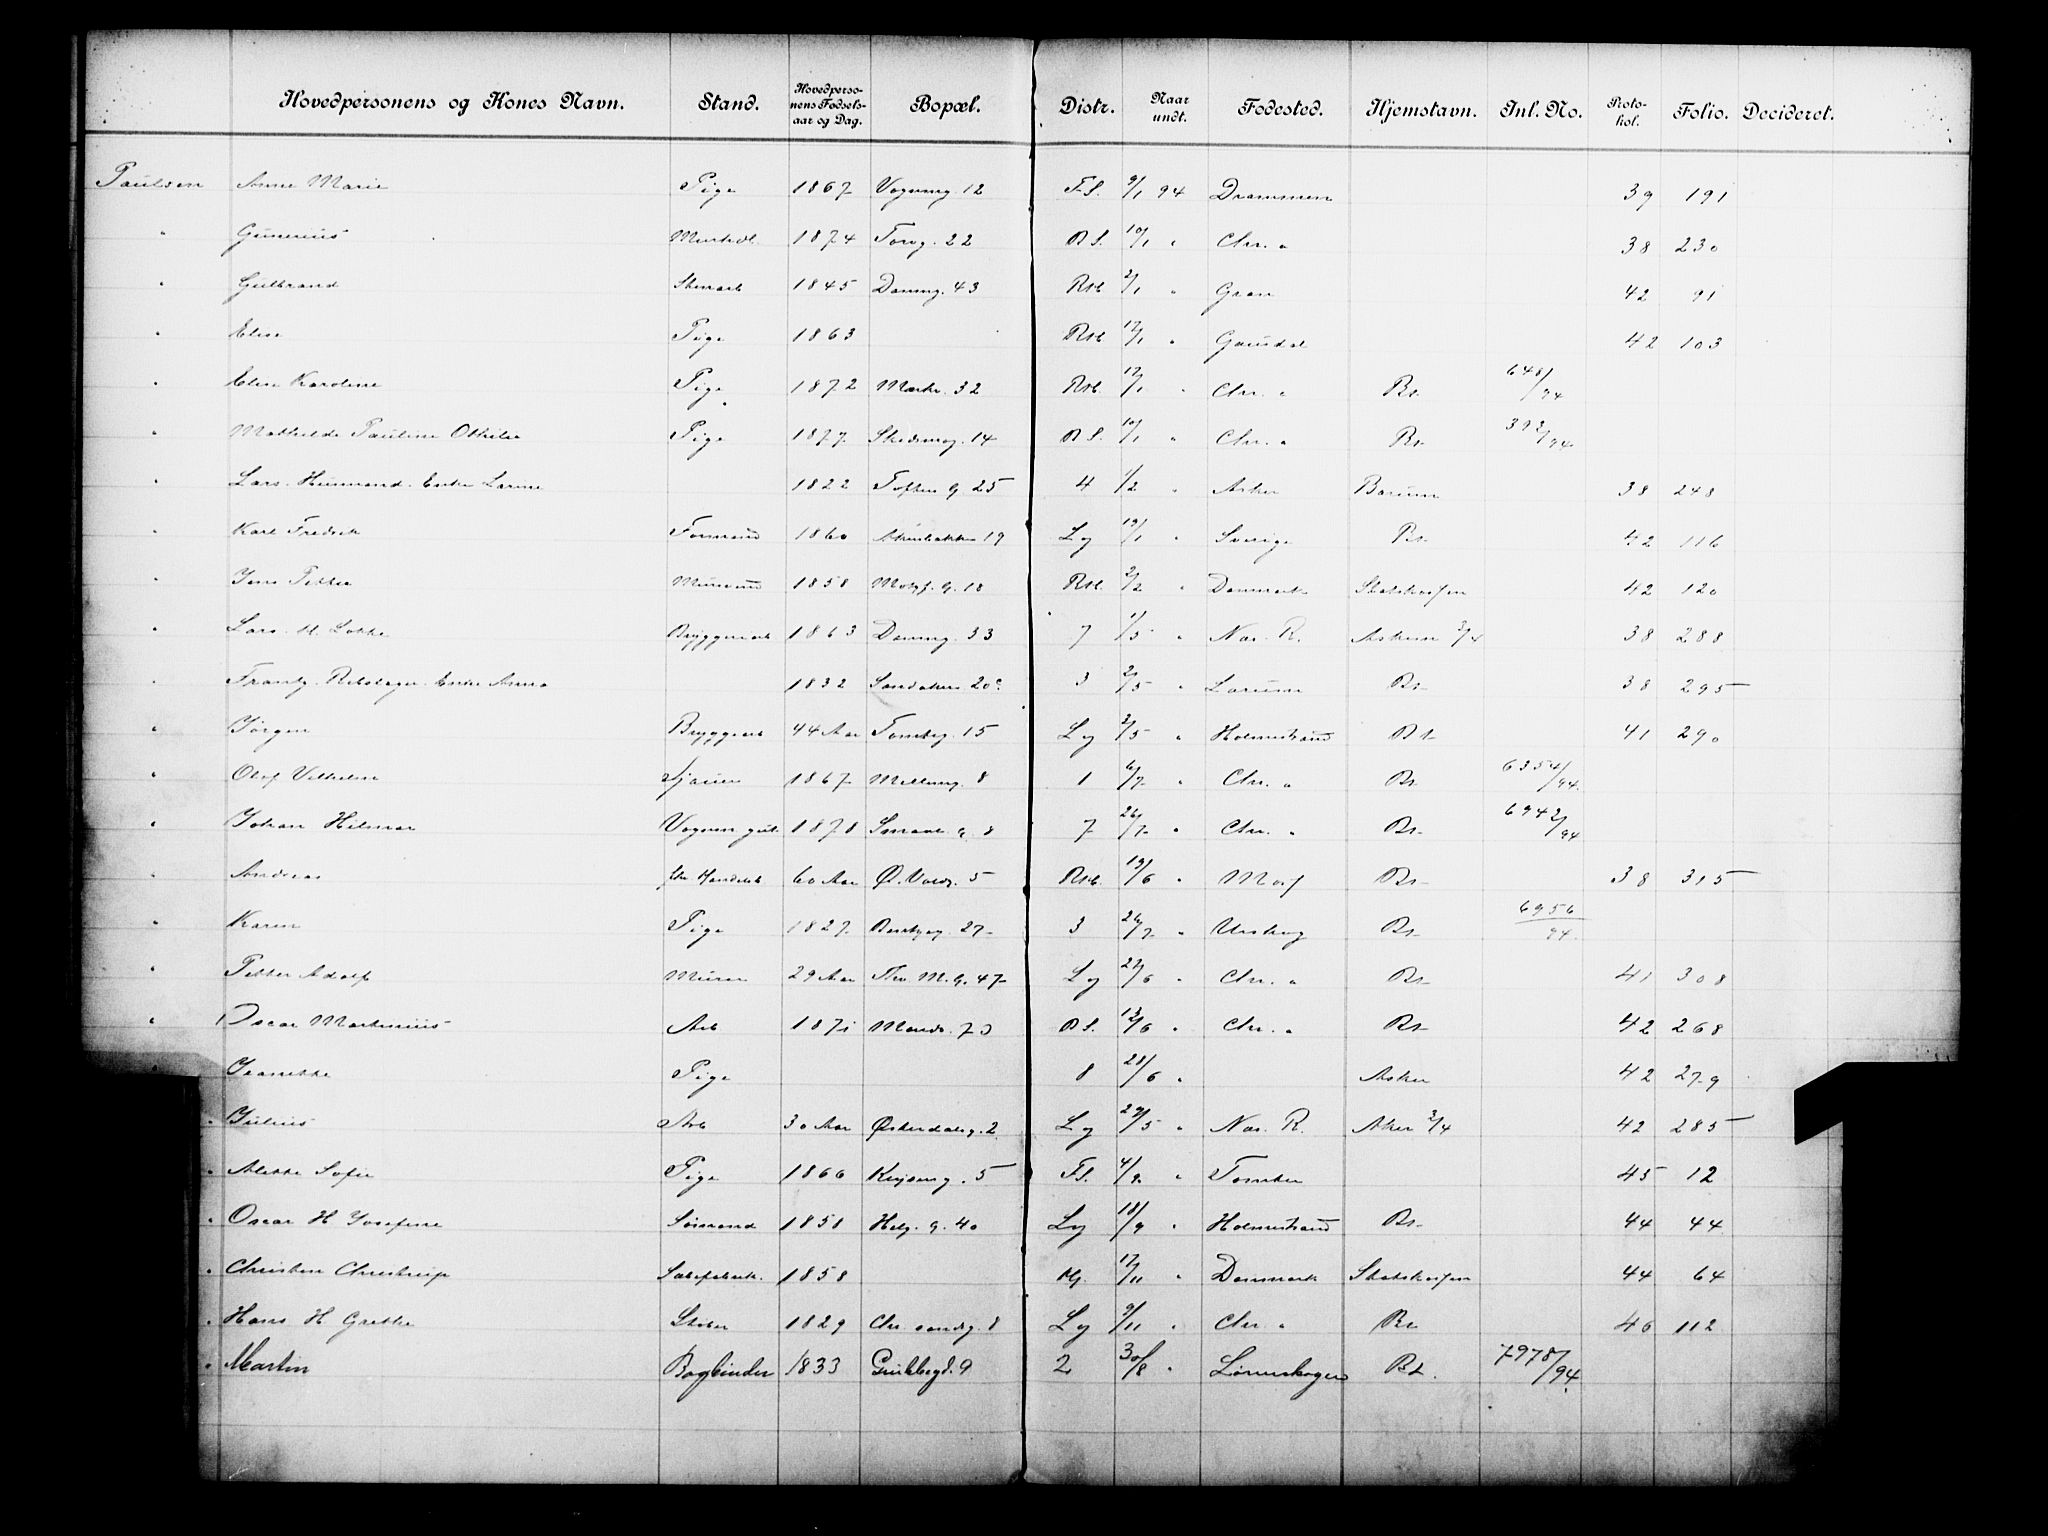 Hovedpersonens og Kones Navn. Stand. Hovedpersonens Fødselsaar og Dag. Bopæl. Distr. Naar undt. Fødested. Hjemstavn. Inl. No. Protokol. Folio. Decideret.
Paulsen Anne Marie Pige 1867 Vognmg. 12 F.S. 9/1 94 Drammen 39 191
" Gunerius 1874 Torvg. 22 B S. 10/1 " Chr. a 38 230
" Gulbrand Stenarb 1845 Damng. 43 2/1 " Gran 42 91
" Elise Pige 1863 17/1 " Gausdal 42 103
" Elise Karoline Pige 1872 Markv. 32 17/1 " Chr. a Br. 648/94
" Mathilde Pauline Othilie Pige 1877 Skedsmog. 14 B S. 10/1 " Chr. a Br. 392/94
" Lars. Huusmand. Enke Larine 1822 Toftes G. 25 4 1/2 " Asker Bærum 38 248
" Karl Fredrik Formand 1860 Akersbakken 19 Ly 19/1 " Sverige Br. 42 116
" Jens Petter Murmand 1858 Motzf. G. 18 2/2 " Danmark Statskassen 42 120
" Lars. M. Lokke Bryggeriarb 1863 Damng. 33 7 1/5 " Næs. R. Askim 3/4 38 288
" Frantz. Rebslager. Enke Anna 1832 Sandakerv 20c 3 2/5 " Larum Br. 38 295
" Jørgen Bryggearb 44 Aar Tomteg. 15 Ly 2/5 " Holmestrand Br. 41 290
" Olaf Vilhelm Sjauer 1867 Mellumg. 8 1 6/7 " Chr. a Br. 6354/94
" Johan Hilmar Vogsmgut. 1878 8 7 26/7 " Chr. a Br. 6942/94
" Andreas fhv Handelsb 60 Aar Ø. Voldg. 5 19/6 " Br. 38 315
" Karen Pige 1827 27 3 26/7 " Urskog Br. 6956/94
" Petter Adolf Murer 29 Aar Thv. M. G. 47 Ly 27/6 " Chr. a Br. 41 308
" Oscar Martinius Arb 1871 Mandr. 73 B S. 12/6 " Chr. a Br. 42 268
" Jeanette Pige 8 28/6 " Asker 42 279
" Julius Arb 30 Aar Østerdalsg. 2 Ly 29/5 " Næs. R. Aker 3/4 42 285
" Alette Sofie Pige 1866 Keyserg. 5 F.S. 4/9 " Tomter 45 12
" Oscar H Josefine Sømand 1858 Helg. G. 40 Ly 18/9 " Holmestrand Br. 44 44
" Christen Christrup Sæbefabrik. 1858 17/11 " Danmark Statskassen 44 64
" Hans H Grethe Skober 1829 Chr. sandsg. 8 Ly 9/11 " Chr. a Br. 46 112
" Martin Bogbinder 1833 9 2 30/8 " Lørenskogen Br. 7978/94